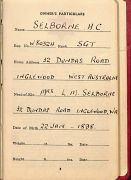 OWNER'S PARTICULARS
Name SELBORNE H.C
No. W80324 Rank SGT
Home Address 32 DUNDAS ROAD
INGLEWOOD WEST AUSTRALIA
Next of Kin MRS L. M. SELBORNE
32 DUNDAS ROAD INGLEWOOD, WA
Date of Birth 22 JAN - 1898
Weight st. lbs. Date
Weight st. lbs. Date
Weight st. lbs. Date